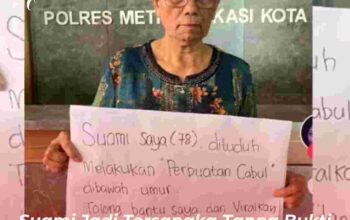 POLRES MET KASI KOTA
Suami saya (78) dituduh
Melakukan "Perpuatan Cabul"
dibawah umur
Tolong bantu saya dan Viralkan
Suami Jadi Tersangka Tanpa Bukti